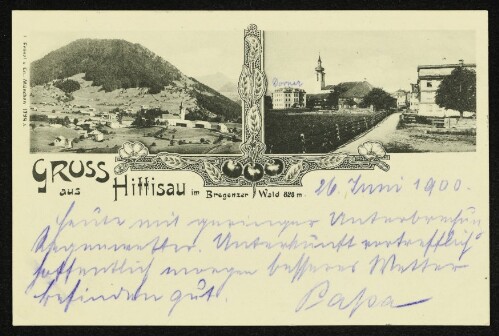 Dorner
GRUSS
aus Hittisau im Bregenzer Wald 828 m.
26. Juni 1900.
Heute mit geringer Unterbrechun
Regenwetter. Unterkunft vortrefflich
hoffentlich morgen besseres Wetter
befinden gut. Papa